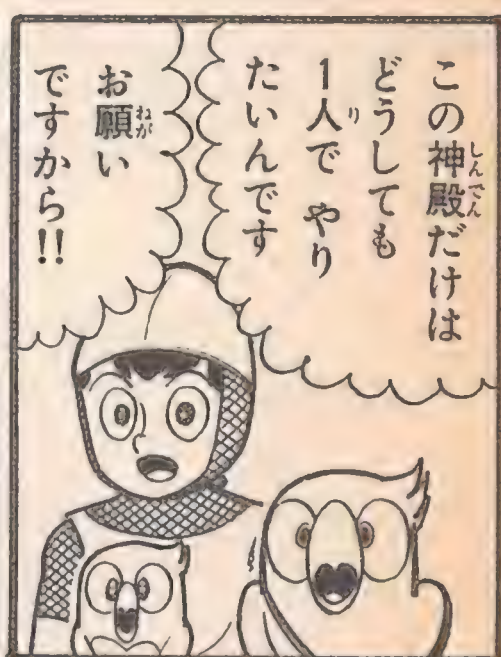 この神殿だけは
どうしても
1人で やり
たいんです
お願い
ですから!!